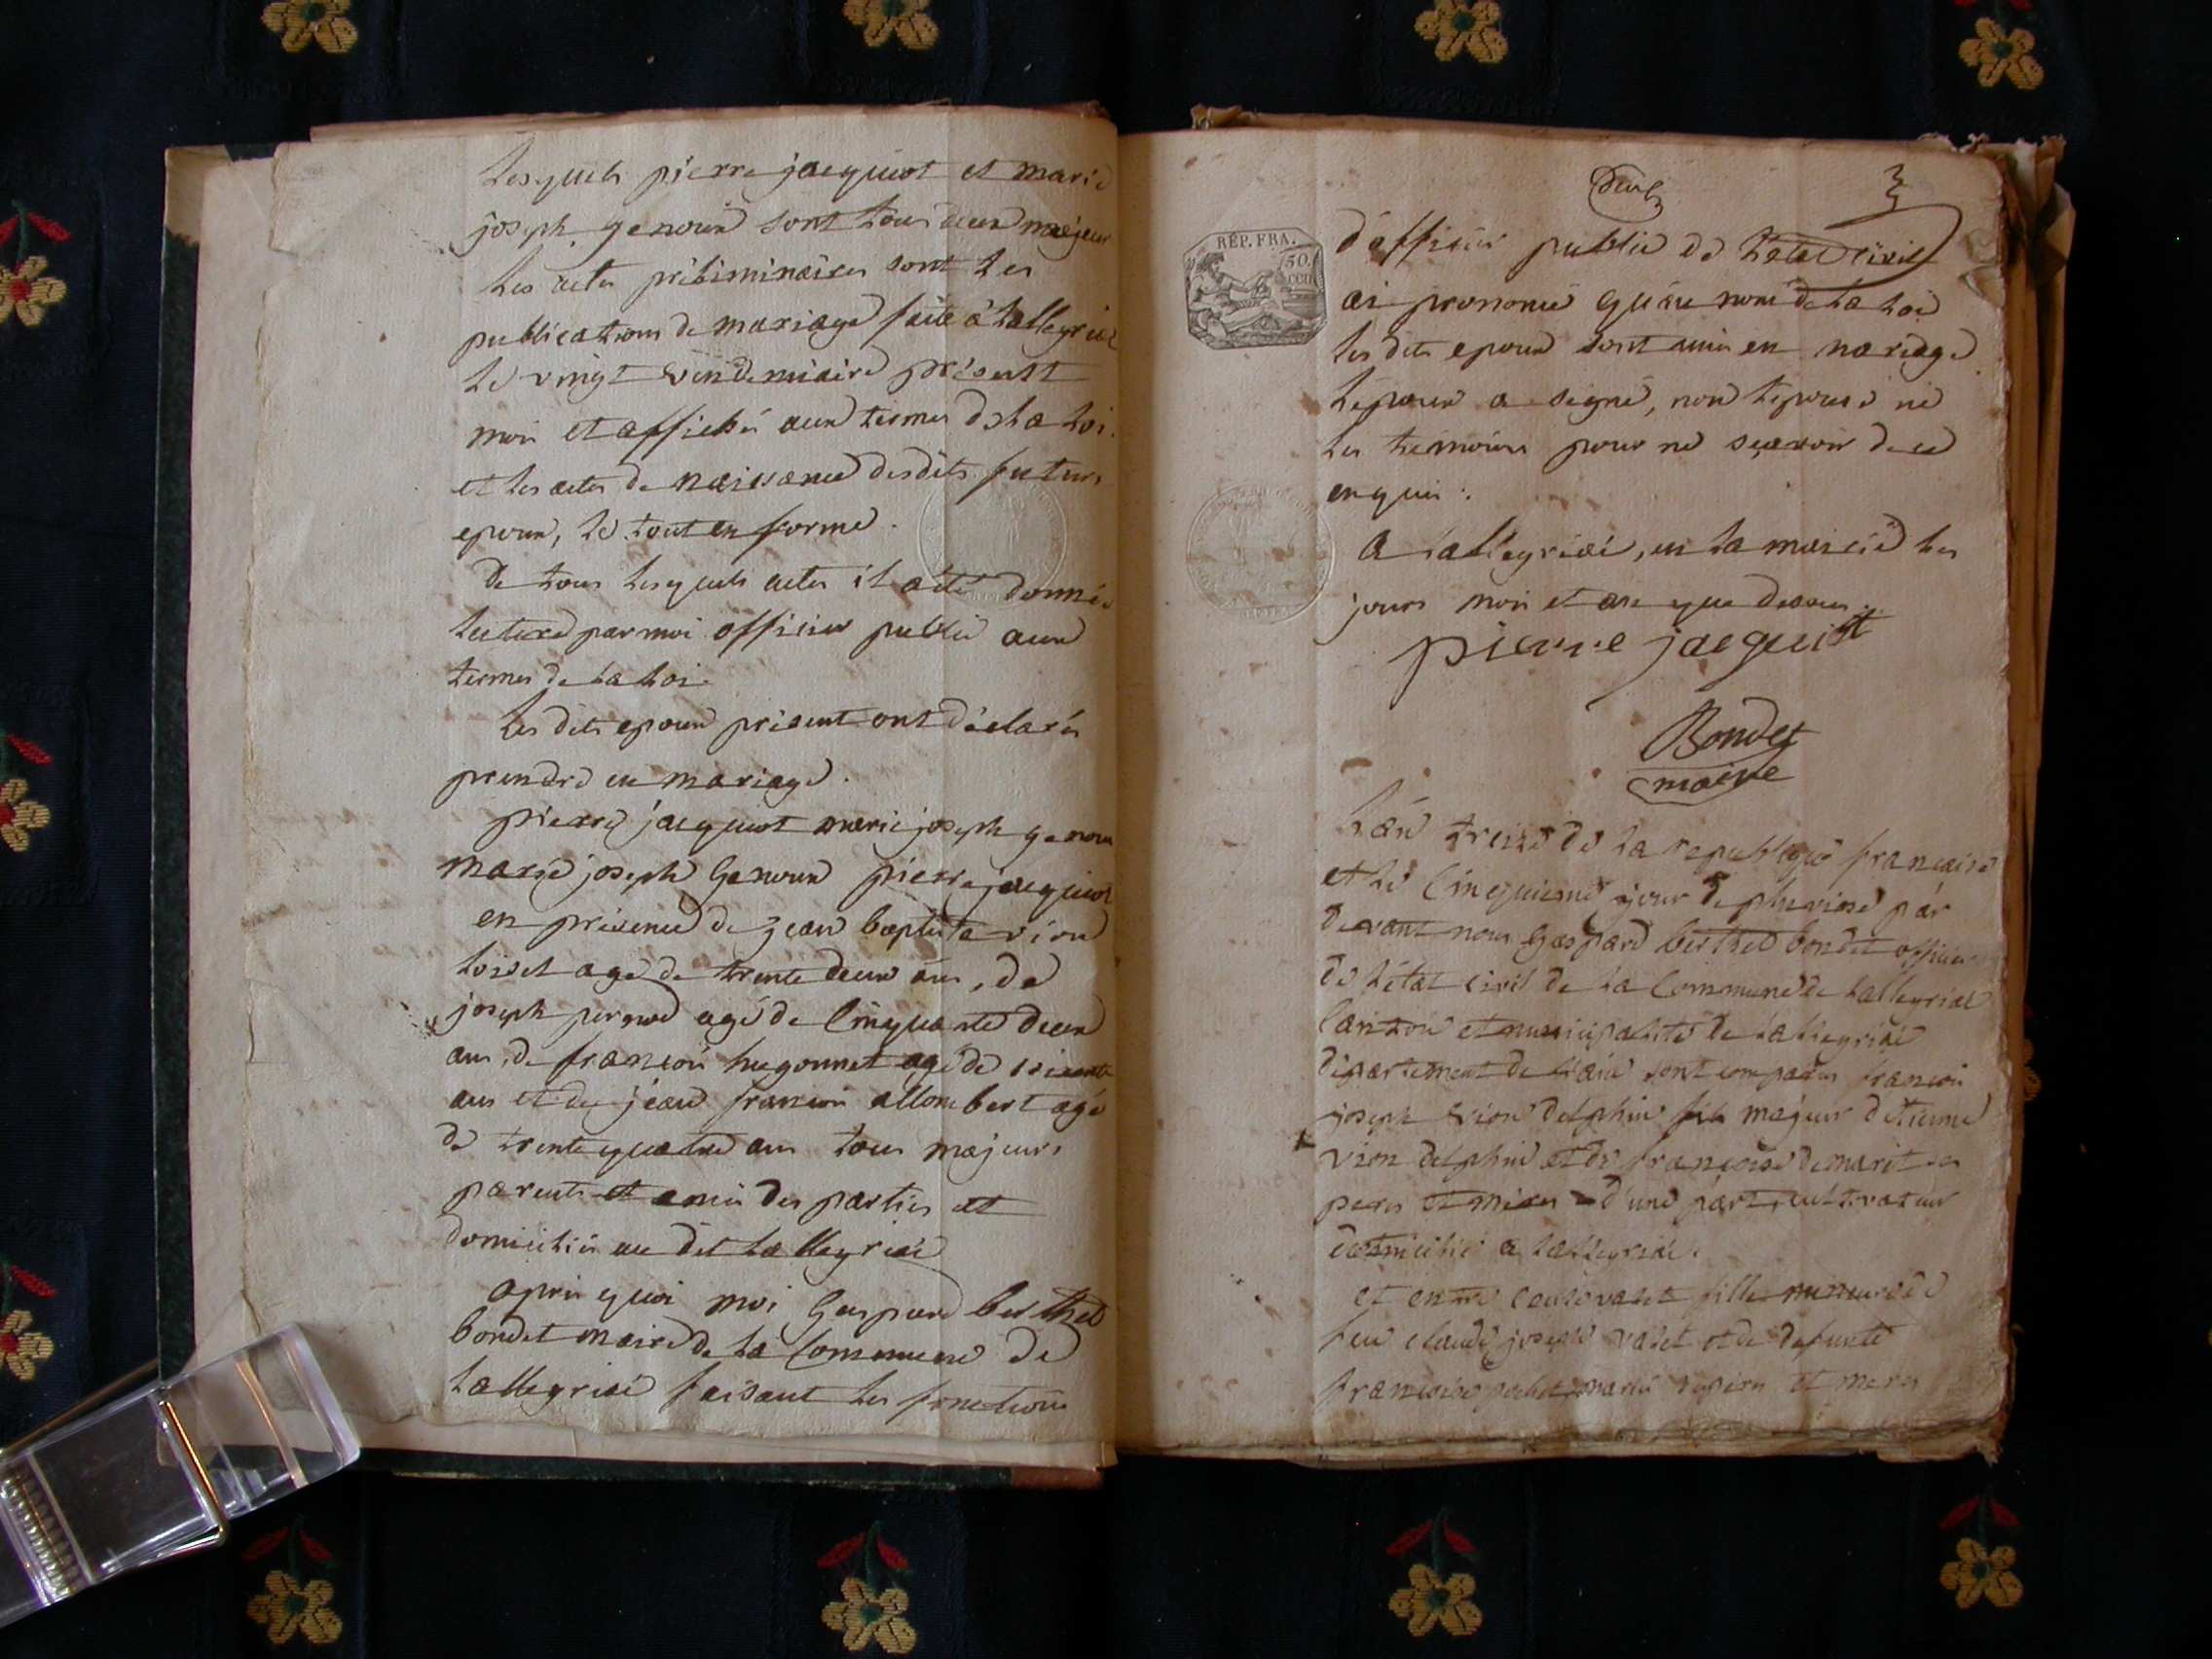 Lesquels pierre jacquiot et marie
joseph genoux sont tous deux majeur
Les actes préliminaires sont Les
publications de mariage faite à Lalleyriat
Le vingt vendemiaire présent
mois et affichés aux termes de La Loi.
et Les actes de naissance desdits futurs
epoux, Le tout en forme.
de tous Lesquels actes il a été donnée
Lecture par moi officier public aux
termes de La Loi.
Les dits epoux présent ont déclarés
prendre en mariage.
pierre jacquiot marie joseph genoux
marie joseph Genoux pierre jacquiot
en présence de jean baptiste vion
Loisel agé de trente deux ans, de
joseph agé de Cinquante deux
ans, de françois hugonnet agé de
ans et de jean françois allombert agé
de trente quatre ans tous majeurs
parents et amis des parties et
domiciliés au dit Lalleyriat
après quoi moi Gaspard berthet
bondet maire de La Commune de
Lalleyriat faisant Les fonctions
3
d'officier public de L'état Civil
ai prononcé qu'au nom de La Loi
Les dits epoux sont unis en mariage
L'epoux a signé, non L'epouse ni
Les témoins pour ne sçavoir de ce
enquis.
A Lalleyriat, en La mairie Les
jours mois et an que dessus.
pierre jacquiot
Bondet
maire
RÉP. FRA.
50.
CEN
L'an treize de La republique francaise
et Le Cinquieme jour de pluviose par
devant nous Gaspard berthet bondet officier
de L'état Civil de La Commune de Lalleyriat
Canton et municipalité de Lalleyriat
département de L'ain sont comparus françois
joseph vion delphin fils majeur d'Etienne
vion delphin et de françoise demarit ses
peres et meres d'une part, cultivateur
domicilié a Lalleyriat.
et entre vallet fille mineure de
feu claude joseph vallet et de defunte
françoise ses peres et meres